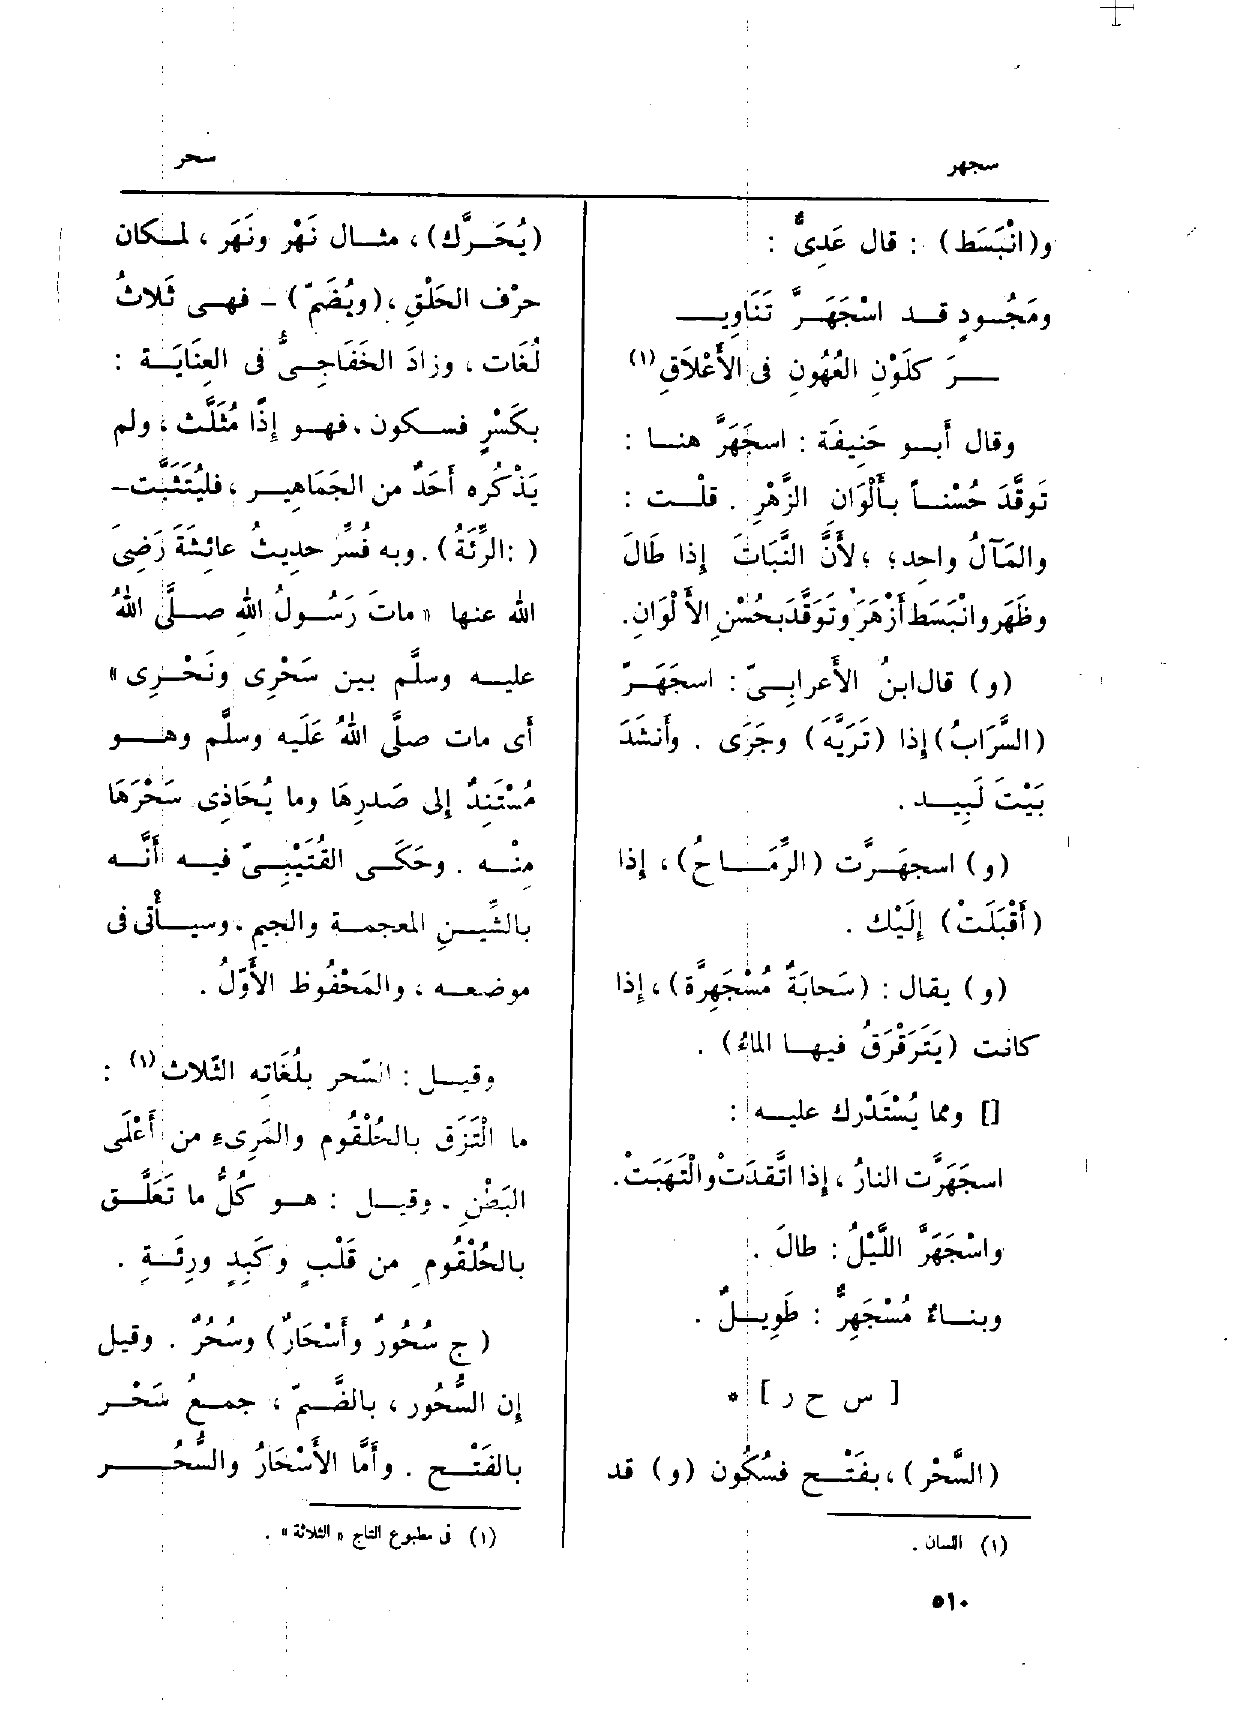 سجهر
سحر
و(انْبَسَط) : قال عَدِىٌّ :
ومَجُـودٍ قـد اسْجَهَـرَّ تَنَاوِيـ
ـرَ كلَوْنِ العُهُونِ فى الأَعْلاَقِ (١)
وقال أَبـو حَنِيفَة : اسجَهَرَّ هنـا :
تَوقَّدَ حُسْنـاً بـأَلْوَانِ الزَّهْرِ . قلْـت :
والمَآلُ واحِد ؛ لأَنَّ النَّبَاتَ إِذا طَالَ
وظَهَر وانْبَسَط أَزْهَرَ وتَوقَّدَ بحُسْنِ الأَلْوَانِ.
(و) قال ابنُ الأَعرابـىّ : اسجَهَـرّ
(السَّرَابُ) إِذا (تَرَيَّهَ) وجَرَى . وأَنشَدَ
بَيْتَ لَبِيـد .
(و) اسجهَـرَّت (الرِّمَـاحُ) ، إِذا
(أَقْبَلَتْ) إِلَيْك .
(و) يقال : (سَحابَةٌ مُسْجَهِرَّة) ، إِذا
كانت (يَتَرَقْرَقُ فيهـا الماءُ) .
[] ومما يُسْتَدْرك عليـه :
اسجَهَرَّت النارُ ، إِذا اتَّقدَتْ والْتَهَبَتْ .
واسْجَهَرَّ اللَّيْلُ : طالَ .
وبنـاءٌ مُسْجَهِرٌّ : طَوِيـلٌ .
[ س ح ر ] *
(السَّحْر) ، بفَتْـح فسُكُون (و) قد
(١) اللسان .
(يُحَـرَّك) ، مثـال نَهْر ونَهَر ، لمـكان
حرْف الحَلْقِ ، (ويُضَمّ) - فهـى ثَلاثُ
لُغَات ، وزادَ الخَفَاجِـىُّ فى العِنَايَـة :
بكَسْرٍ فسـكون . فهـو إِذًا مُثَلَّث ، ولم
يَذْكُره أَحَدٌ من الجَمَاهِيـر ، فليُتَثَبَّت -
( : الرِّئَةُ) . وبه فُسِّر حديثُ عائِشَة رَضِىَ
الله عنها « ماتَ رَسُـولُ اللهِ صـلَّى اللهُ
عليـه وسلَّم بين سَحْرِى ونَحْـرِى »
أَى مات صلَّى اللهُ عَلَيه وسلَّم وهـو
مُسْتَنِدٌ إِلى صَدرِهَا وما يُحَاذِى سَحْرَهَا
مِنْـه . وحَكَـى القُتَيْبِـىّ فيـه أَنَّـه
بالشِّيـنِ المعجمـة والجيمِ . وسيـأْتى فى
موضعـه ، والمَحْفُوظ الأَوّلُ .
وقيـل : السّحر بلُغَاتِه الثّلاث (١) :
ما الْتَزَق بالحُلْقُوم والمَرِىءِ من أَعْلَى
البَطْنِ . وقيـل : هـو كُلُّ ما تَعَلَّـق
بالحُلْقُوم من قَلْبٍ وكَبِدٍ ورِئَـةٍ .
(ج سُحُورٌ وأَسْحَارٌ) وسُحُرٌ . وقيل
إِن السُّحُور ، بالضَّـمّ ، جمـعُ سَحْـر
بالفَتْـح . وأَمَّا الأَسْحَارُ والسُّحُـر
(١) فى مطبوع التاج « الثلاثة » .
٥١٠